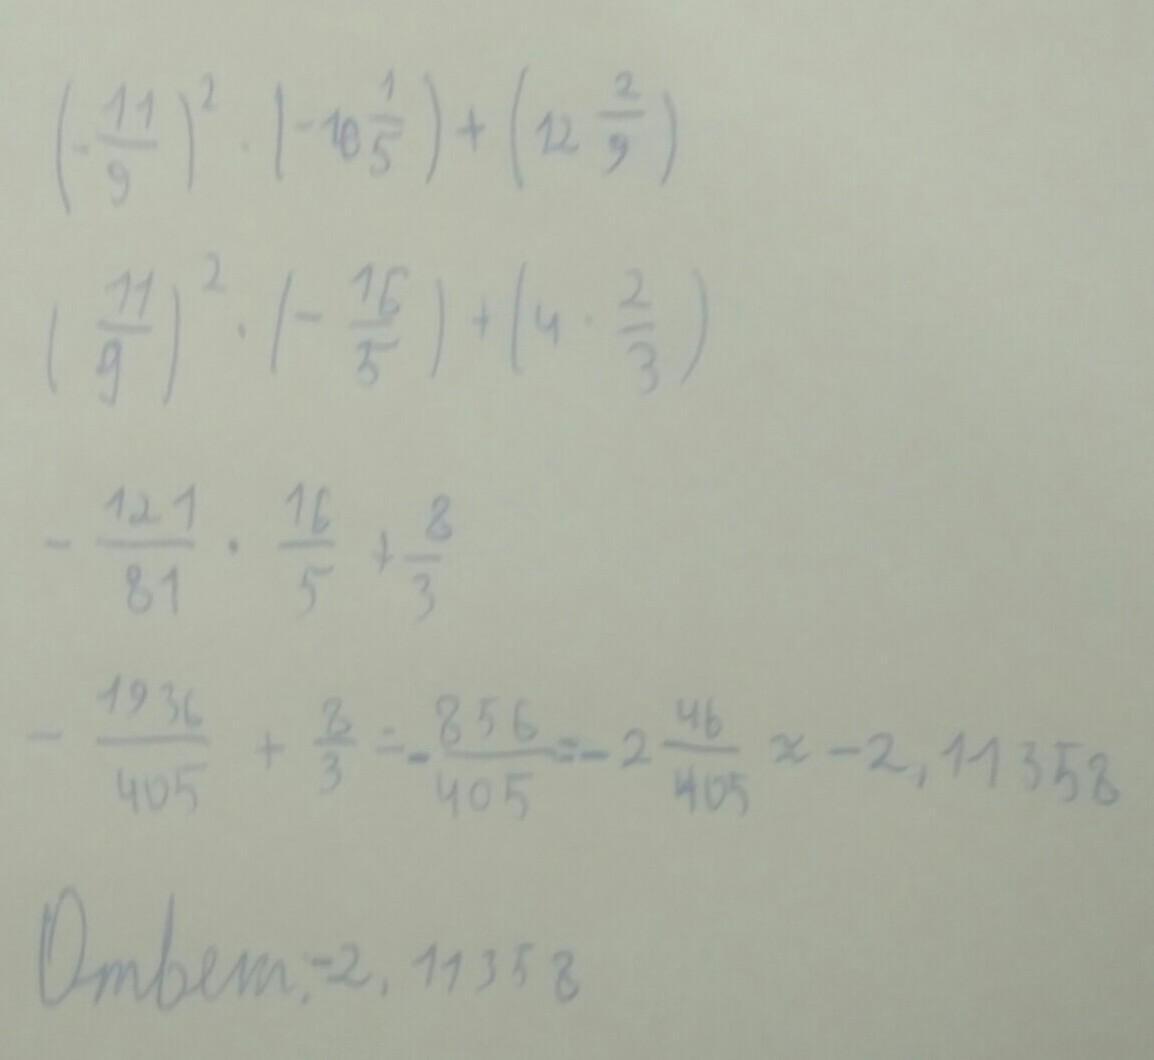 (-11/9)² · (-16 1/5) + (12 2/9)
(11/9)² · (- 16/5) + (4 · 2/3)
- 121/81 · 16/5 + 8/3
- 1936/405 + 8/3 = - 856/405 = -2 46/405 ≈ -2,11358
Ответ: -2,11358